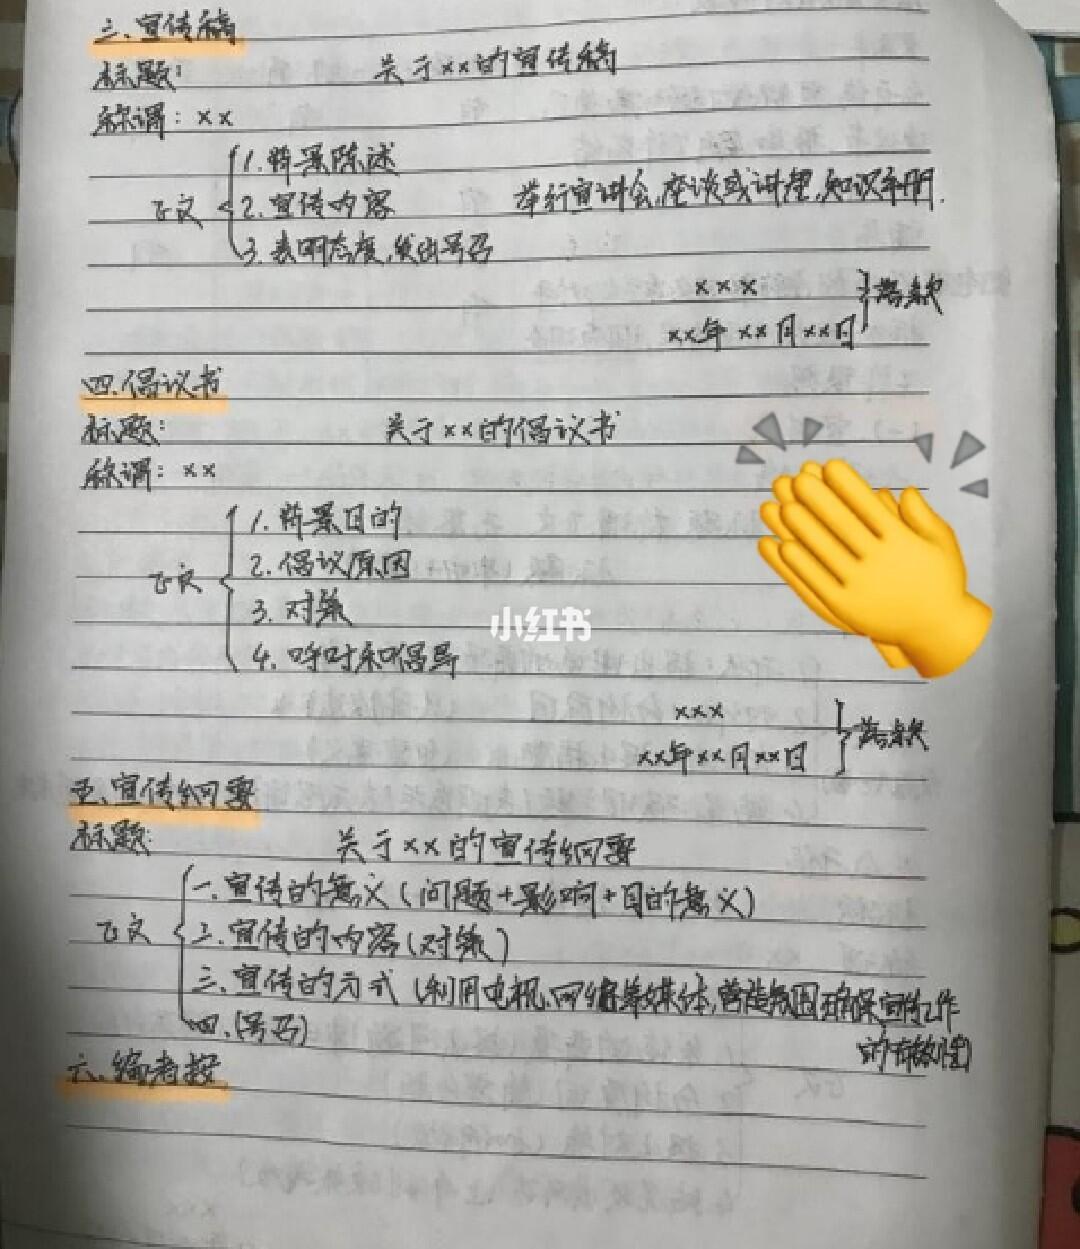 三、宣传稿
标题: 关于××的宣传稿
称谓: ××
1. 背景陈述
正文 2. 宣传内容 举行宣讲会,座谈或讲座,知识手册.
3. 表明态度,发出号召
×××
落款
××年××月××日
四.倡议书
标题: 关于××的倡议书
称谓: ××
1. 背景目的
正文 2. 倡议原因
3. 对策
小红书
4. 呼吁和倡导
×××
落款
××年××月××日
五、宣传纲要
标题: 关于××的宣传纲要
一.宣传的意义(问题+影响+目的意义)
正文 二.宣传的内容(对策)
三.宣传的方式(利用电视、网络等媒体,营造氛围确保宣传工作
的有效性)
四.(号召)
六、编者按